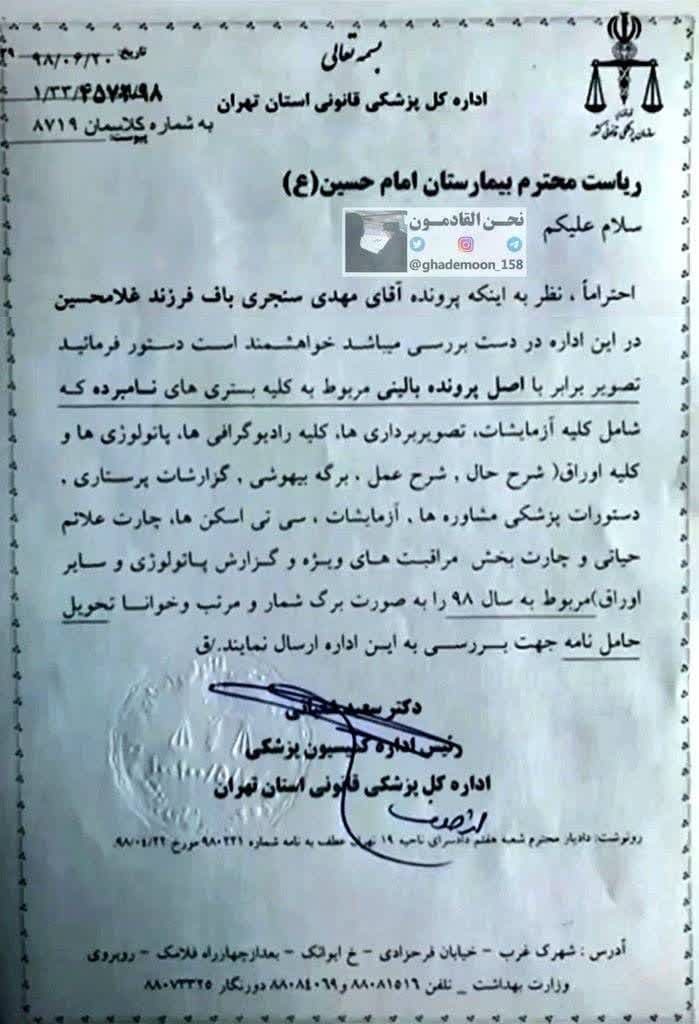 بسمه تعالی
تاریخ: ۹۸/۰۶/۲۰
۱/۳۳/۴۵۷۴/۹۸
به شماره کلاسمان ۸۷۱۹
پیوست:
سازمان پزشکی قانونی کشور
اداره کل پزشکی قانونی استان تهران
ریاست محترم بیمارستان امام حسین(ع)
سلام علیکم
نحن القادمون
@ghademoon_158
احتراماً ، نظر به اینکه پرونده آقای مهدی سنجری باف فرزند غلامحسین
در این اداره در دست بررسی میباشد خواهشمند است دستور فرمائید
تصویر برابر با اصل پرونده بالینی مربوط به کلیه بستری های نامبرده که
شامل کلیه آزمایشات، تصویربرداری ها، کلیه رادیوگرافی ها، پاتولوژی ها و
کلیه اوراق( شرح حال , شرح عمل , برگه بیهوشی , گزارشات پرستاری ,
دستورات پزشکی مشاوره ها , آزمایشات ، سی تی اسکن ها، چارت علائم
حیاتی و چارت بخش مراقبت های ویژه و گزارش پاتولوژی و سایر
اوراق)مربوط به سال ۹۸ را به صورت برگ شمار و مرتب وخوانا تحویل
حامل نامه جهت بررسی به این اداره ارسال نمایند./ق
دکتر سعید
رئیس اداره کمیسیون پزشکی
اداره کل پزشکی قانونی استان تهران
رونوشت: دادیار محترم شعبه هفتم دادسرای ناحیه ۱۹ تهران عطف به نامه شماره ۹۸۰۲۲۱ مورخ ۹۸/۰۴/۲۲.
آدرس : شهرک غرب - خیابان فرحزادی - خ ایوانک - بعدازچهارراه فلامک - روبروی
وزارت بهداشت _ تلفن ۸۸۰۸۱۵۱۶ و ۸۸۰۸۴۰۶۹ دورنگار ۸۸۰۷۳۳۲۵